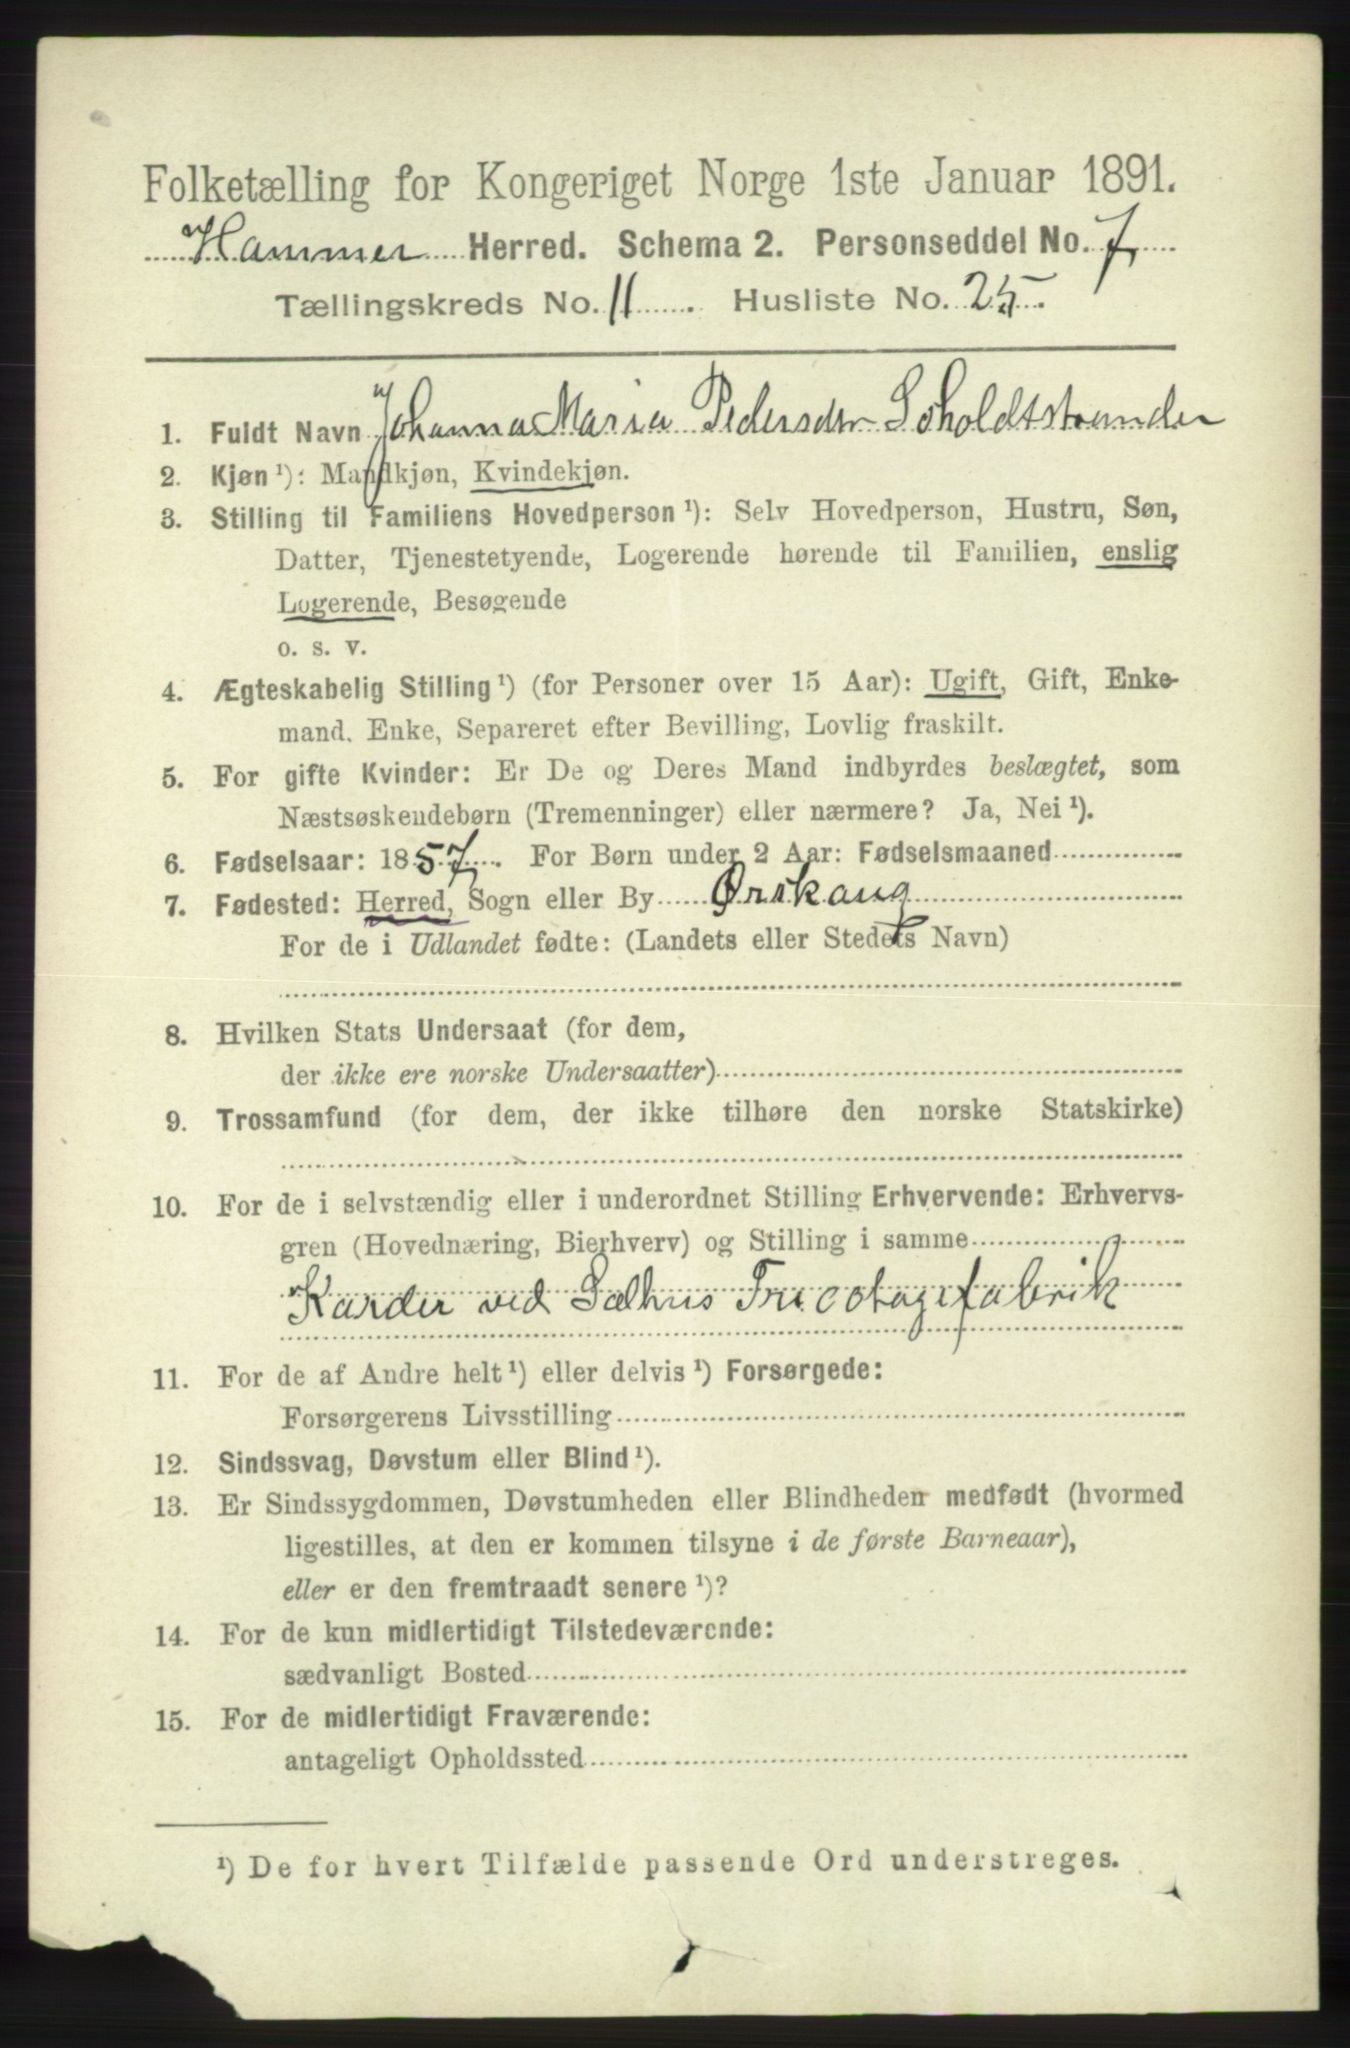 Folketælling for Kongeriget Norge 1ste Januar 1891.
Hammer Herred. Schema 2. Personseddel No. 7
Tællingskreds No. 11. Husliste No. 25.
1. Fuldt Navn Johanna Maria Pedersdtr Soholdtstranden
2. Kjøn¹): Mandkjøn, Kvindekjøn.
3. Stilling til Familiens Hovedperson¹): Selv Hovedperson, Hustru, Søn,
Datter, Tjenestetyende, Logerende hørende til Familien, enslig
Logerende, Besøgende
o. s. v.
4. Ægteskabelig Stilling¹) (for Personer over 15 Aar): Ugift, Gift, Enke-
mand. Enke, Separeret efter Bevilling, Lovlig fraskilt.
5. For gifte Kvinder: Er De og Deres Mand indbyrdes beslægtet, som
Næstsøskendebørn (Tremenninger) eller nærmere? Ja, Nei¹).
6. Fødselsaar: 1857. For Børn under 2 Aar: Fødselsmaaned
7. Fødested: Herred, Sogn eller By Ørskaug
For de i Udlandet fødte: (Landets eller Stedets Navn)
8. Hvilken Stats Undersaat (for dem,
der ikke ere norske Undersaatter)
9. Trossamfund (for dem, der ikke tilhøre den norske Statskirke)
10. For de i selvstændig eller i underordnet Stilling Erhvervende: Erhvervs-
gren (Hovednæring, Bierhverv) og Stilling i samme
Karder ved Salhus Tricotagefabrik
11. For de af Andre helt¹) eller delvis¹) Forsørgede:
Forsørgerens Livsstilling
12. Sindssvag, Døvstum eller Blind¹).
13. Er Sindssygdommen, Døvstumheden eller Blindheden medfødt (hvormed
ligestilles, at den er kommen tilsyne i de første Barneaar),
eller er den fremtraadt senere¹)?
14. For de kun midlertidigt Tilstedeværende:
sædvanligt Bosted
15. For de midlertidigt Fraværende:
antageligt Opholdssted
¹) De for hvert Tilfælde passende Ord understreges.